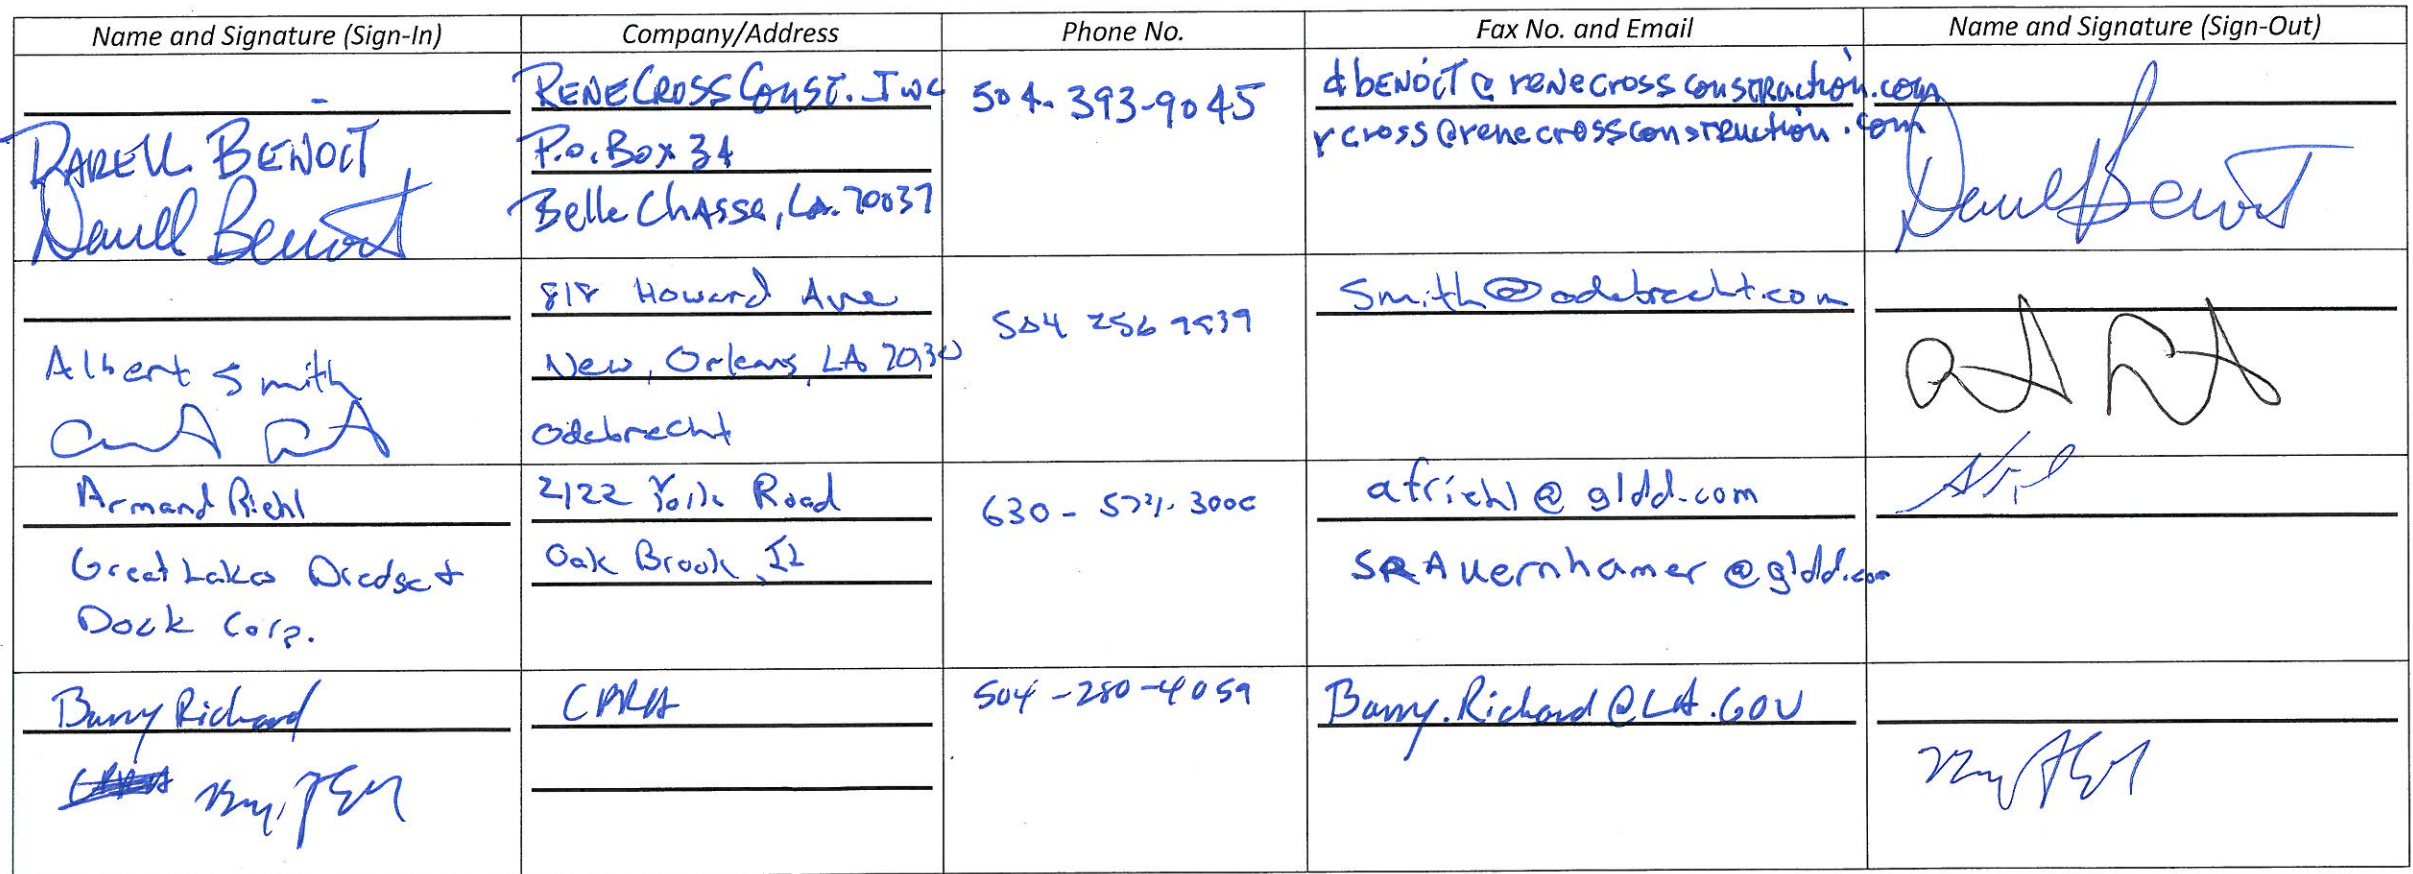 Name and Signature (Sign-In) Company/Address Phone No. Fax No. and Email Name and Signature (Sign-Out)
RENE CROSS CONST. INC
P.O. Box 34
Belle Chasse, La. 70037
DARELL BENOIT
Darell Benoit
504-393-9045
dbENOiT@renecrossconstruction.com
rcross@renecrossconstruction.com
Darell Benoit
Albert Smith
818 Howard Ave
New, Orleans, LA
Odebrecht
504 256
Smith@odebrecht.com
Armand Riehl
Great Lakes Dredge +
Dock Corp.
2122 York Road
Oak Brook, IL
630-574-3000
afriehl@gldd.com
SRAuernhamer@gldd.com
Barry Richard
CPRA
504-280-4059
Barry.Richard@LA.GOV